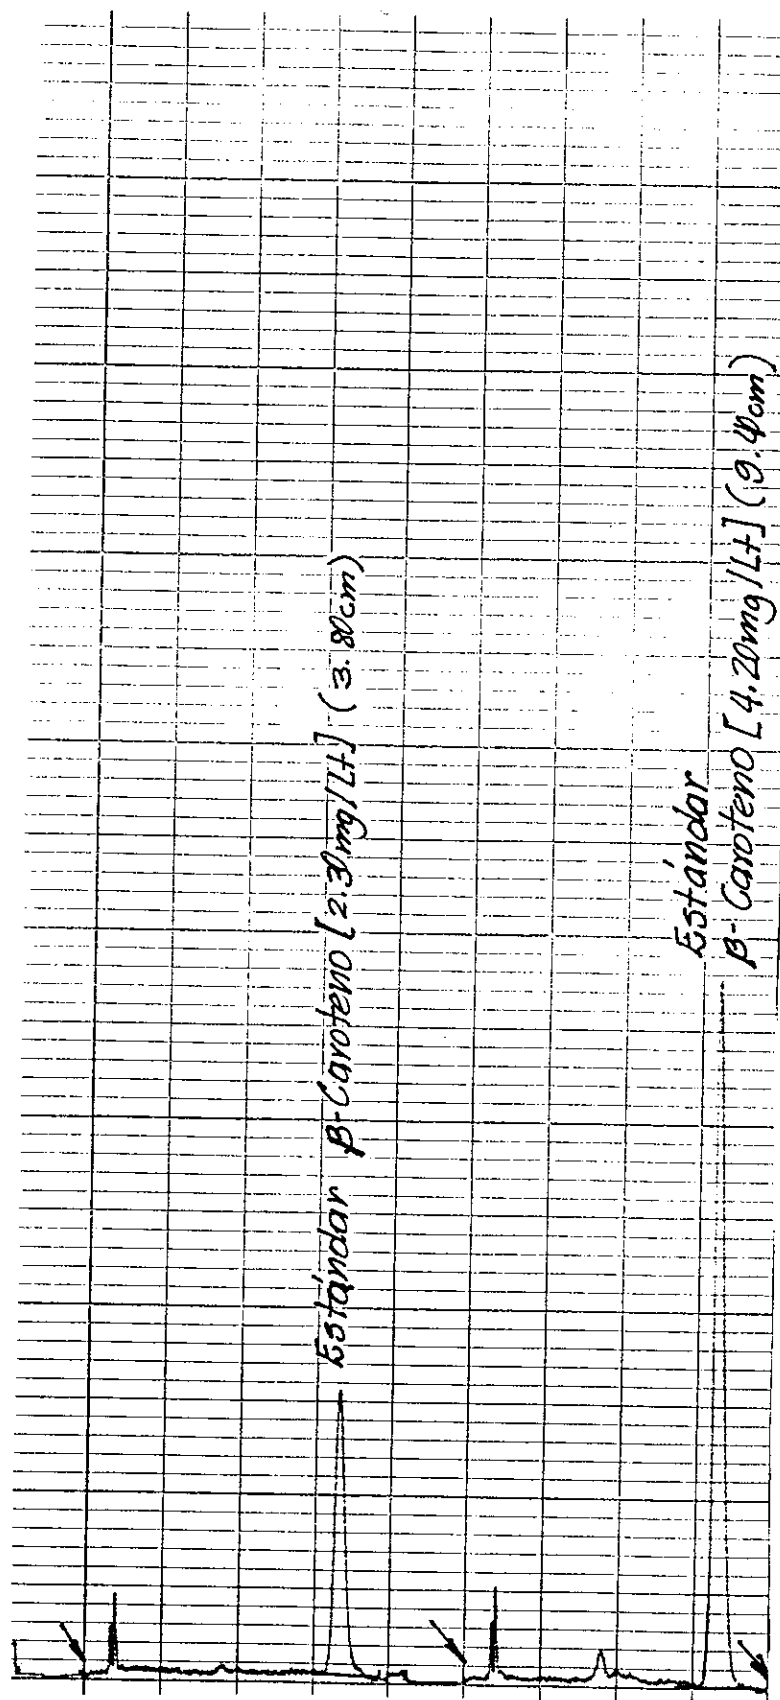 Estándar β-Caroteno [2.30mg/Lt] (3.80cm)
Estándar
β-Caroteno [4.20mg/Lt] (9.40cm)